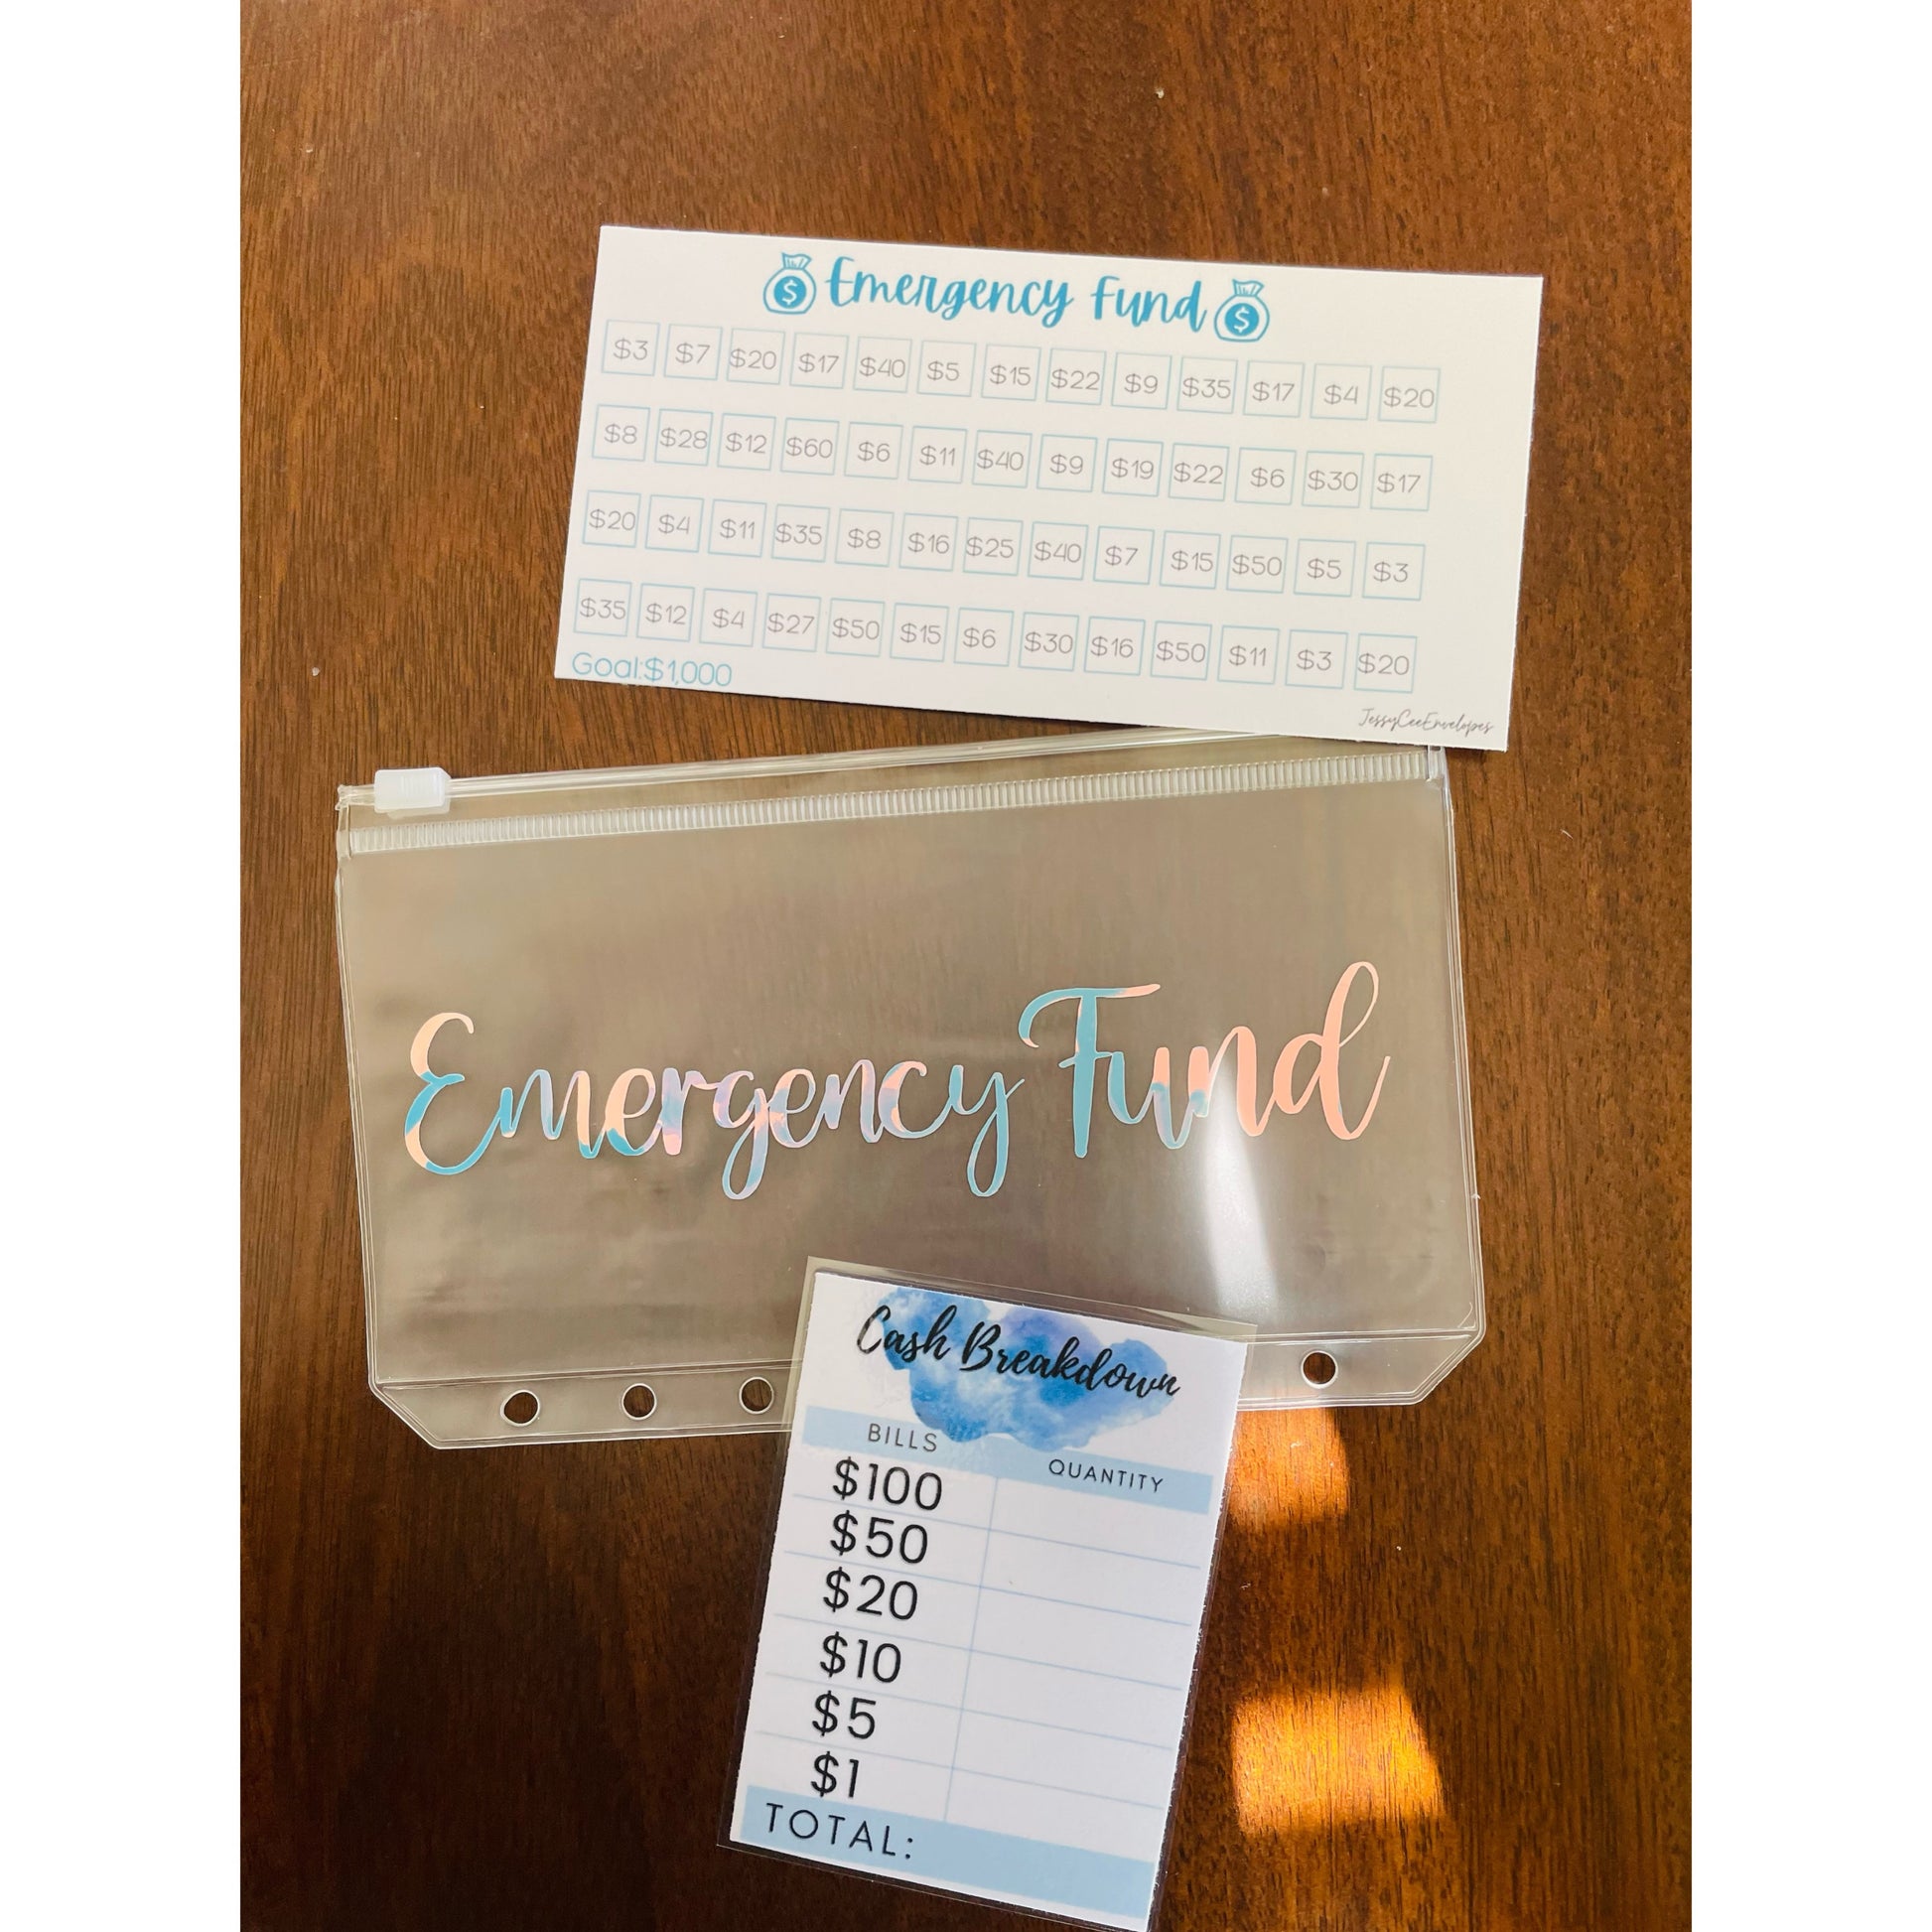 Emergency Fund
$3 $7 $20 $17 $40 $5 $15 $22 $9 $35 $17 $4 $20
$8 $28 $12 $60 $6 $11 $40 $9 $19 $22 $6 $30 $17
$20 $4 $11 $35 $8 $16 $25 $40 $7 $15 $50 $5 $3
$35 $12 $4 $27 $50 $15 $6 $30 $16 $50 $11 $3 $20
Goal:$1,000
JessyCeeEnvelopes
Emergency Fund
Cash Breakdown
BILLS QUANTITY
$100
$50
$20
$10
$5
$1
TOTAL: